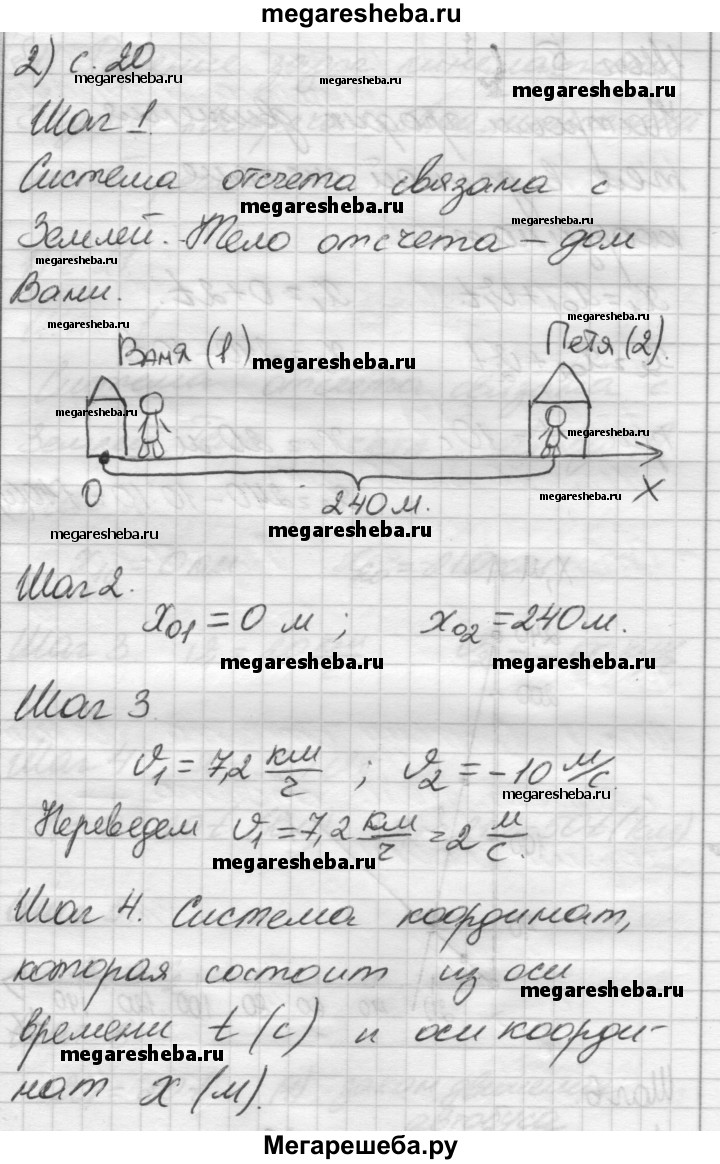 megaresheba.ru
2) с. 20
megaresheba.ru
megaresheba.ru
megaresheba.ru
Шаг 1.
Система отсчета связана с
megaresheba.ru
megaresheba.ru
Землей. Тело отсчета – дом
megaresheba.ru
Вани.
megaresheba.ru
megaresheba.ru
Ваня (1)
megaresheba.ru
Петя (2).
megaresheba.ru
megaresheba.ru
0
240 м.
megaresheba.ru
X
megaresheba.ru
megaresheba.ru
Шаг 2.
x₀₁ = 0 м ; x₀₂ = 240 м.
megaresheba.ru
megaresheba.ru
Шаг 3.
ϑ₁ = 7,2 км/ч ; ϑ₂ = -10 м/с.
megaresheba.ru
Переведем ϑ₁ = 7,2 км/ч = 2 м/с.
megaresheba.ru
Шаг 4. Система координат,
которая состоит из оси
megaresheba.ru
времени t (с) и оси коорди-
megaresheba.ru
нат X (м).
Мегарешеба.ру